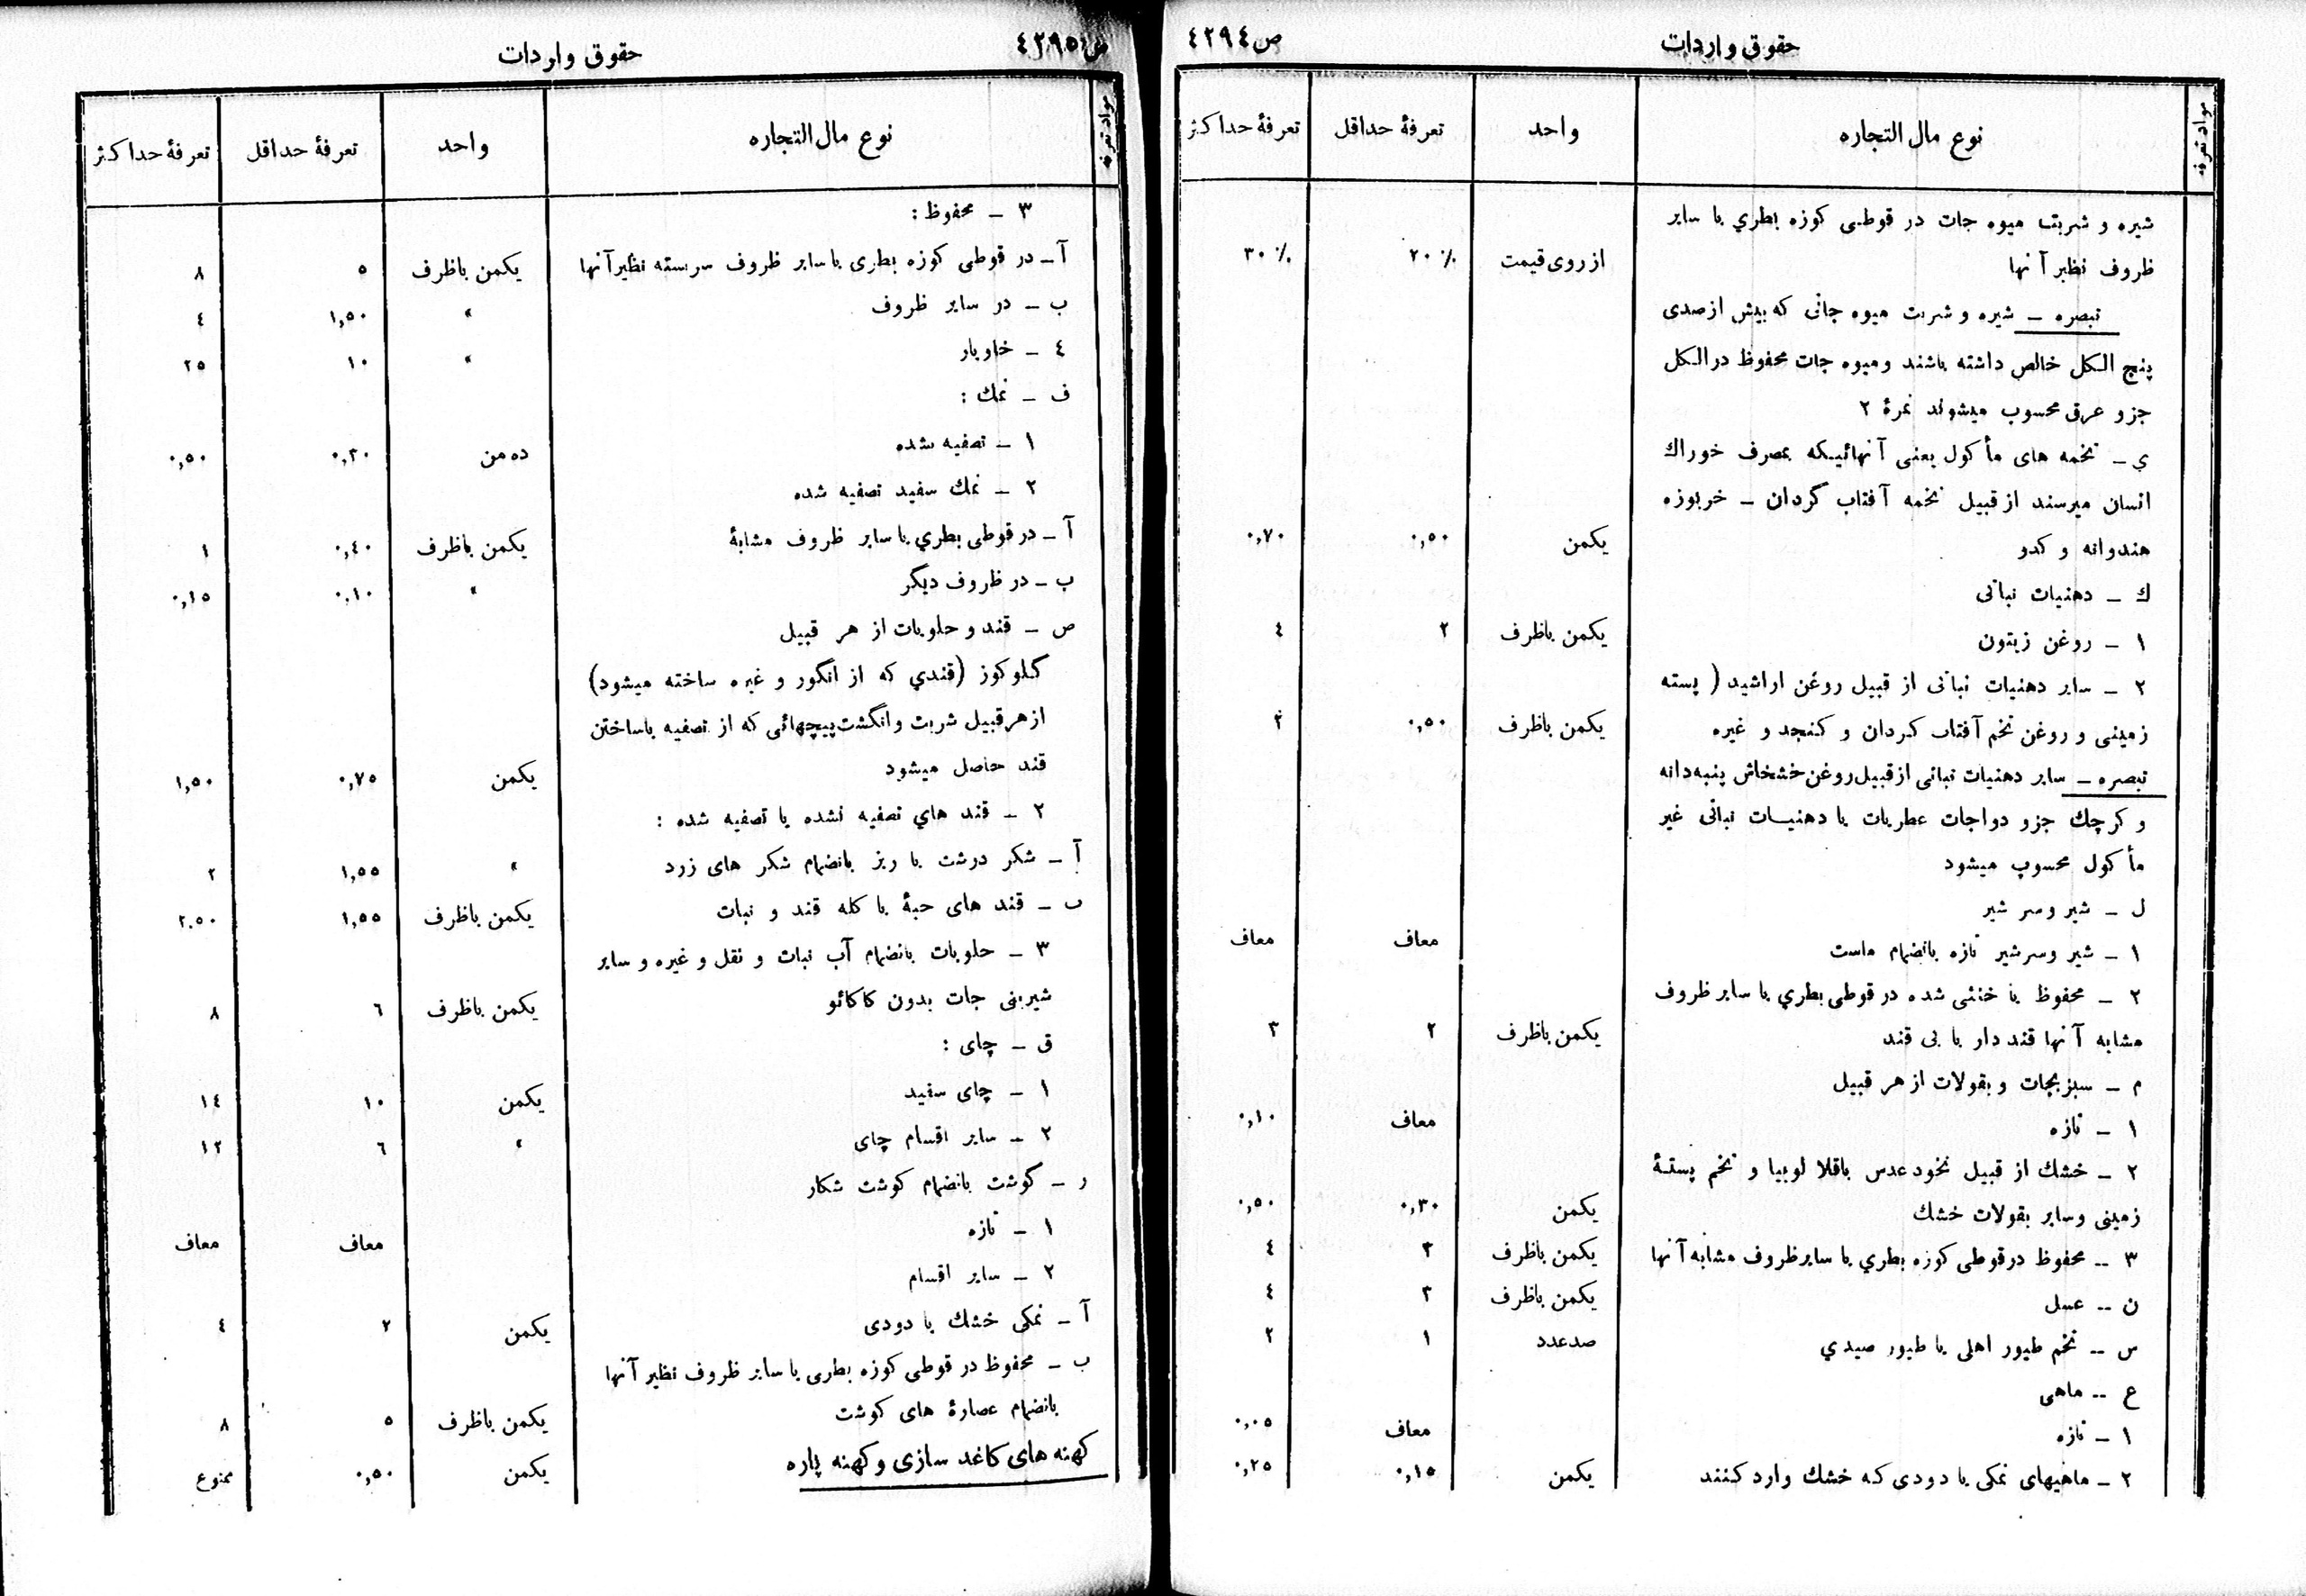 حقوق واردات
ص ٤٢٩٤
مواد تعرفه
نوع مال التجاره
واحد
تعرفهٔ حداقل
تعرفهٔ حداکثر
شیره و شربت میوه جات در قوطی کوزه بطري یا سایر
ظروف نظیر آنها
از روی قیمت
٪ ۲۰
٪ ۳۰
تبصره ــ شیره و شربت میوه جاتی که بیش از صدی
پنج الکل خالص داشته باشند و میوه جات محفوظ در الکل
جزو عرق محسوب میشوند نمرهٔ ۲
ي ــ تخمه های مأکول یعنی آنهائیکه بمصرف خوراك
انسان میرسند از قبیل تخمه آفتاب گردان ــ خربوزه
هندوانه و کدو
یکمن
۰٫۵۰
۰٫۷۰
ك ــ دهنیات نباتی
۱ ــ روغن زیتون
یکمن باظرف
۲
٤
۲ ــ سایر دهنیات نباتی از قبیل روغن اراشید ( پسته
زمینی و روغن تخم آفتاب کردان و کنجد و غیره
یکمن باظرف
۰٫۵۰
۲
تبصره ــ سایر دهنیات نباتی از قبیل روغن خشخاش پنبه دانه
و کرچك جزو دواجات عطریات یا دهنیات نباتی غیر
مأکول محسوب میشود
ل ــ شیر و سر شیر
۱ ــ شیر و سرشیر تازه بانضمام ماست
معاف
معاف
۲ ــ محفوظ یا خنثی شده در قوطی بطري یا سایر ظروف
مشابه آنها قند دار یا بی قند
یکمن باظرف
۲
۳
م ــ سبزیجات و بقولات از هر قبیل
۱ ــ تازه
معاف
۰٫۱۰
۲ ــ خشك از قبیل نخود عدس باقلا لوبیا و تخم پستهٔ
زمینی و سایر بقولات خشك
یکمن
۰٫۳۰
۰٫۵۰
۳ ــ محفوظ در قوطی کوزه بطري یا سایر ظروف مشابه آنها
یکمن باظرف
۳
٤
ن ــ عسل
یکمن باظرف
۳
٤
س ــ تخم طیور اهلی یا طیور صیدي
صد عدد
۱
۲
ع ــ ماهی
۱ ــ تازه
معاف
۰٫۰۵
۲ ــ ماهیهای نمکی یا دودی که خشك وارد کنند
یکمن
۰٫۱۵
۰٫۲۵
ص ٤٢٩٥
حقوق واردات
مواد تعرفه
نوع مال التجاره
واحد
تعرفهٔ حداقل
تعرفهٔ حداکثر
۳ ــ محفوظ :
آ ــ در قوطی کوزه بطری یا سایر ظروف سر بسته نظیر آنها
یکمن باظرف
۵
۸
ب ــ در سایر ظروف
«
۱٫۵۰
٤
٤ ــ خاویار
«
۱۰
۲۵
ف ــ نمك :
۱ ــ تصفیه نشده
ده من
۰٫۲۰
۰٫۵۰
۲ ــ نمك سفید تصفیه شده
آ ــ در قوطی بطري یا سایر ظروف مشابهٔ
یکمن باظرف
۰٫٤۰
۱
ب ــ در ظروف دیگر
«
۰٫۱۰
۰٫۱۵
ص ــ قند و حلویات از هر قبیل
گلوکوز (قندي که از انگور و غیره ساخته میشود)
از هر قبیل شربت و انگشت پیچهائی که از تصفیه یا ساختن
قند حاصل میشود
یکمن
۰٫۷۵
۱٫۵۰
۲ ــ قند هاي تصفیه نشده یا تصفیه شده :
آ ــ شکر درشت یا ریز بانضمام شکر های زرد
«
۱٫۵۵
۲
ب ــ قند های حبهٔ یا کله قند و نبات
یکمن باظرف
۱٫۵۵
۲٫۵۰
۳ ــ حلویات بانضمام آب نبات و نقل و غیره و سایر
شیرینی جات بدون کاکائو
یکمن باظرف
٦
۸
ق ــ چای :
۱ ــ چای سفید
یکمن
۱۰
۱٤
۲ ــ سایر اقسام چای
«
٦
۱۲
ر ــ گوشت بانضمام گوشت شکار
۱ ــ تازه
معاف
معاف
۲ ــ سایر اقسام
آ ــ نمکی خشك یا دودی
یکمن
۲
٤
ب ــ محفوظ در قوطی کوزه بطری یا سایر ظروف نظیر آنها
بانضمام عصارهٔ های گوشت
یکمن باظرف
۵
۸
کهنه های کاغذ سازی و کهنه پاره
یکمن
۰٫۵۰
ممنوع